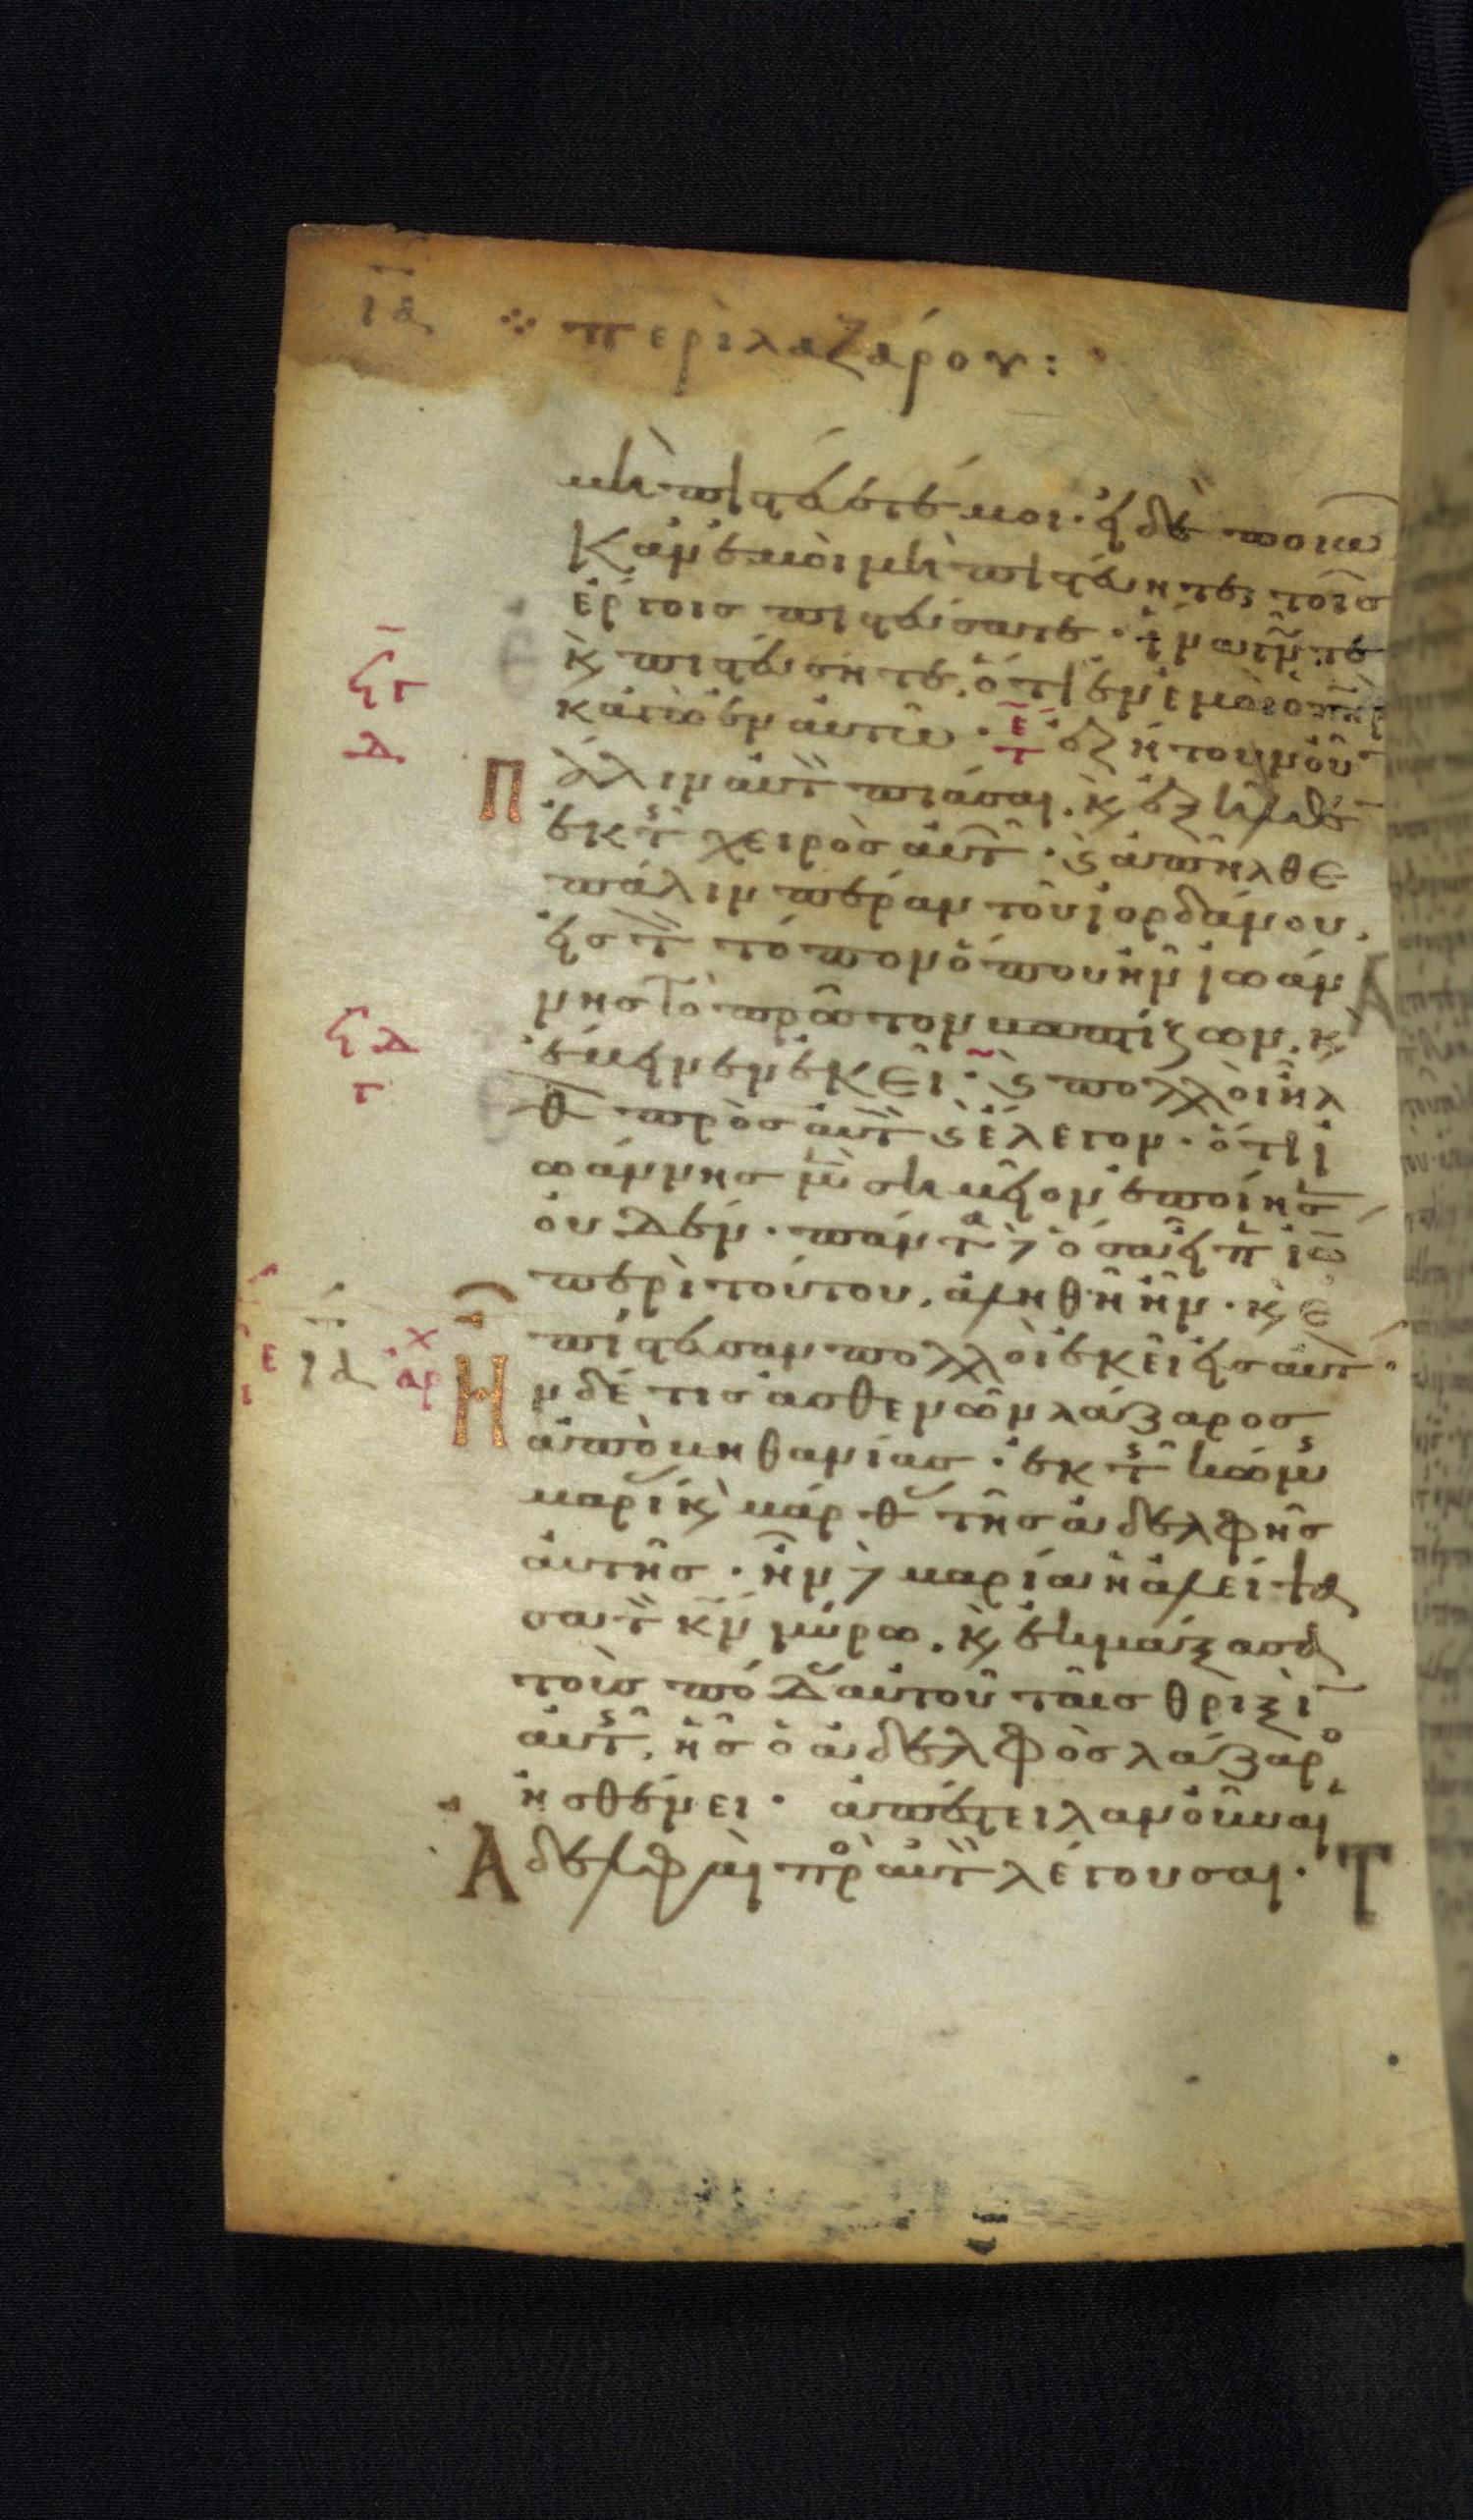 ια περι λαζάρου:
μὴ πιστεύετέ μοι· εἰ δὲ ποιῶ
κἀν ἐμοὶ μὴ πιστεύητε, τοῖς
ἔργοις πιστεύσατε· ἵνα γνῶτε
κ πιστεύσητε, ὅτι ἐν ἐμοὶ ὁ πηρ
κἀγὼ ἐν αὐτῶ· ἐζήτουν οὖν
Πάλιν αὐτ πιάσαι. κ ἐξῆλθε
ἐκ τ χειρὸς αὐτ· κ ἀπῆλθε
πάλιν πέραν τοῦ ἰορδάνου,
εἰς τ τόπον ὅπου ἦν ἰωάν
νης τὸ πρῶτον βαπτίζων. κ
ἔμεινεν ἐκεῖ· κ πολλοὶ ἦλ
θ πρὸς αὐτ κ ἔλεγον· ὅτι ἰ
ωάννης μ σημεῖον ἐποίησ
οὐδέν· πάντα δὲ ὅσα εἶπ ἰω
περὶ τούτου, ἀληθῆ ἦν· κ ἐ
πίστευσαν πολλοὶ ἐκεῖ εἰς αὐτ·
Ἦν δέ τις ἀσθενῶν λάζαρος
ἀπὸ βηθανίας· ἐκ τ κώμ
μαρί κ μάρθ τῆς ἀδελφῆς
αὐτῆς· ἦν δὲ μαρία ἡ ἀλείψα
σα τ κν μύρω. κ ἐκμάξασα
τοὺς πόδ αὐτοῦ ταῖς θριξὶ
αὐτ, ἧς ὁ ἀδελφὸς λάζαρο
ἠσθένει· ἀπέστειλαν οὖν αἱ
Ἀδελφαὶ πρ αὐτ λέγουσαι·